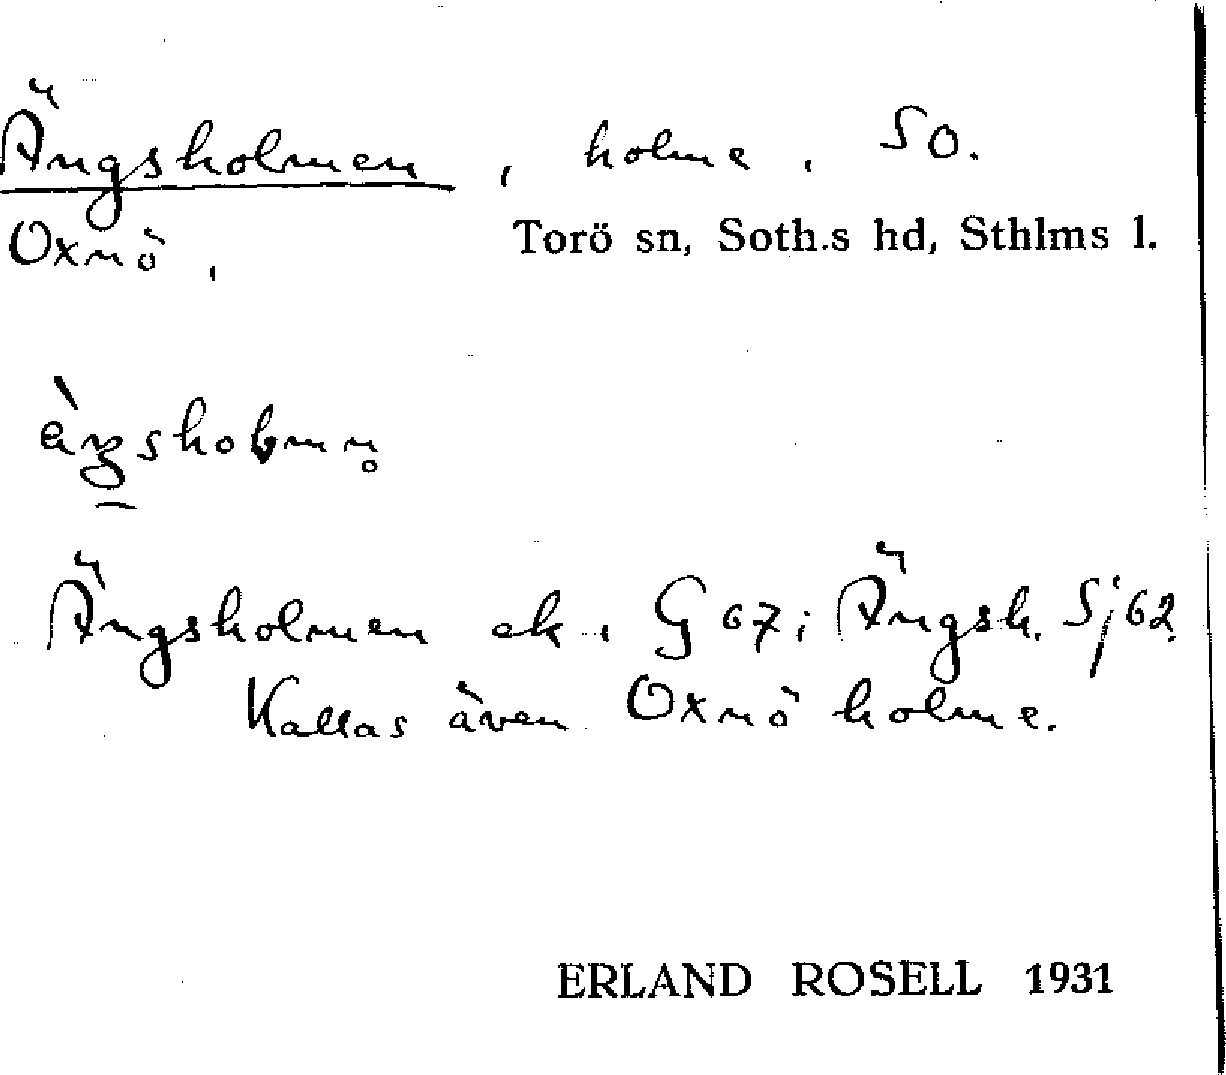 Ängsholmen, holme, SO.
Oxnö, Torö sn, Soth.s hd, Sthlms l.
Ängsholmen ek. G 67; Ängsh. Sj 62.
Kallas även Oxnö holme.
ERLAND ROSELL 1931